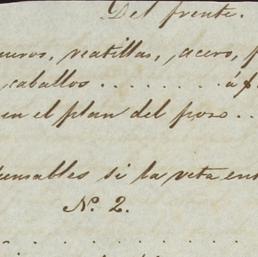 Del frente.
ueros, reatillas, acero, p
caballos . . . . . . . . á $
en el plan del pozo . .
ensables si la veta en
N.º 2.